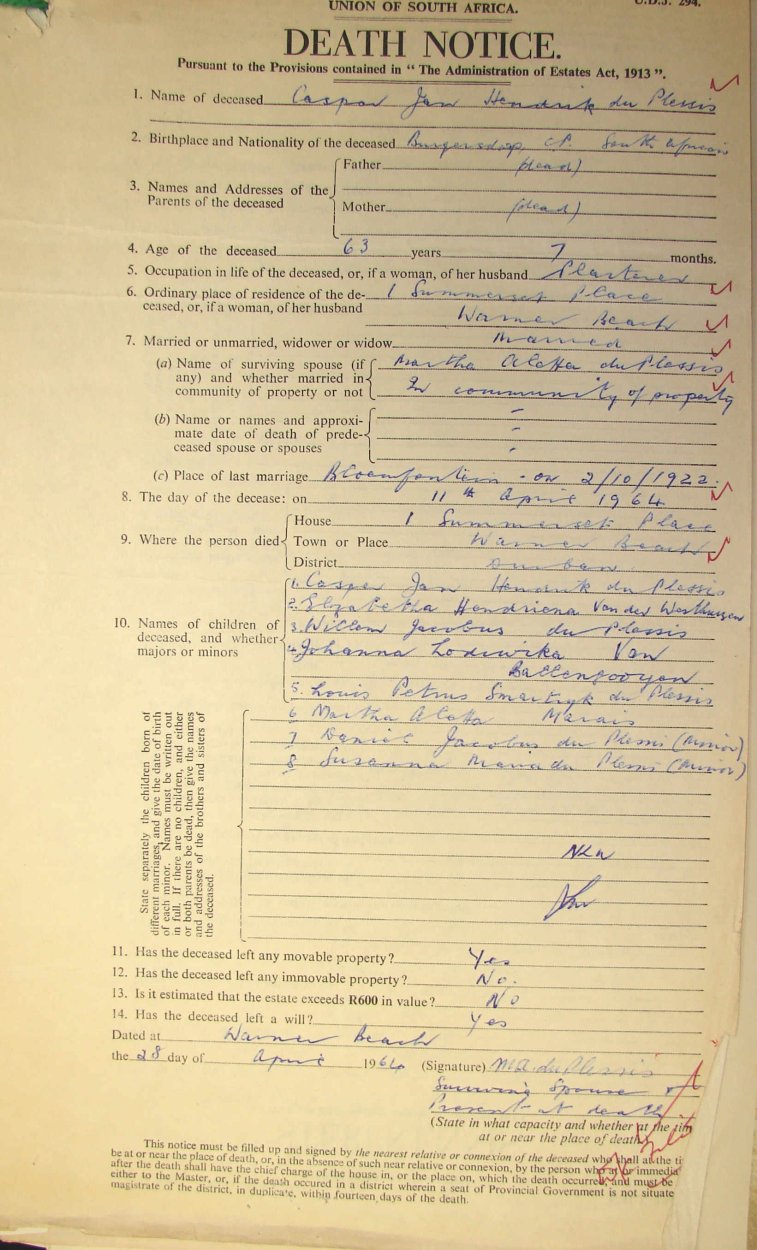 UNION OF SOUTH AFRICA.
U.D.J. 294.
DEATH NOTICE.
Pursuant to the Provisions contained in “ The Administration of Estates Act, 1913 ”.
1. Name of deceased Casper Jan Hendrik du Plessis
2. Birthplace and Nationality of the deceased Burgersdorp, C.P. South African
3. Names and Addresses of the Parents of the deceased
Father (dead)
Mother (dead)
4. Age of the deceased 63 years 7 months.
5. Occupation in life of the deceased, or, if a woman, of her husband Plasterer
6. Ordinary place of residence of the de- 1 Summerset Place
ceased, or, if a woman, of her husband
Warner Beach
7. Married or unmarried, widower or widow Married
(a) Name of surviving spouse (if Martha Aletta du Plessis
any) and whether married in
community of property or not In community of property
(b) Name or names and approxi-
mate date of death of prede-
ceased spouse or spouses
(c) Place of last marriage Bloemfontein - on 2/10/1922.
8. The day of the decease: on 11th April 1964
9. Where the person died
House 1 Summerset Place
Town or Place Warner Beach
District Durban.
10. Names of children of
deceased, and whether
majors or minors
1. Casper Jan Hendrik du Plessis
2. Elizabetha Hendriena Van der Westhuizen
3. Willem Jacobus du Plessis
4. Johanna Lodewika Van
Ballengooyen
5. Louis Petrus du Plessis
6 Martha Aletta Marais
7 Daniel Jacobus du Plessis (Minor)
8 Susanna Maria du Plessis (Minor)
State separately the children born of
different marriages, and give the date of birth
of each minor. Names must be written out
in full. If there are no children, and either
or both parents be dead, then give the names
and addresses of the brothers and sisters of
the deceased.
11. Has the deceased left any movable property? Yes
12. Has the deceased left any immovable property? No.
13. Is it estimated that the estate exceeds R600 in value? No
14. Has the deceased left a will? Yes
Dated at Warner Beach
the 28 day of April 1964 (Signature) M.A. du Plessis
Surviving Spouse &
Present at death
(State in what capacity and whether at the tim
at or near the place of death.
This notice must be filled up and signed by the nearest relative or connexion of the deceased who shall at the ti
be at or near the place of death, or, in the absence of such near relative or connexion, by the person who at or immedia
after the death shall have the chief charge of the house in, or the place on, which the death occurred, and must be
either to the Master, or, if the death occured in a district wherein a seat of Provincial Government is not situate
magistrate of the district, in duplicate, within fourteen days of the death.